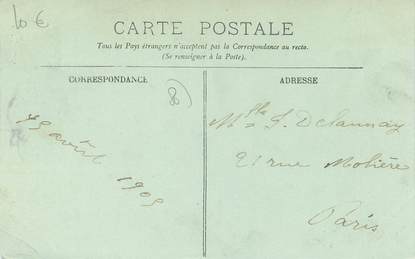 10 €
CARTE POSTALE
Tous les Pays étrangers n'acceptent pas la Correspondance au recto.
(Se renseigner à la Poste).
CORRESPONDANCE
80
avril
1905
ADRESSE
Mlle S. Delaunay
21 rue Molière
Paris